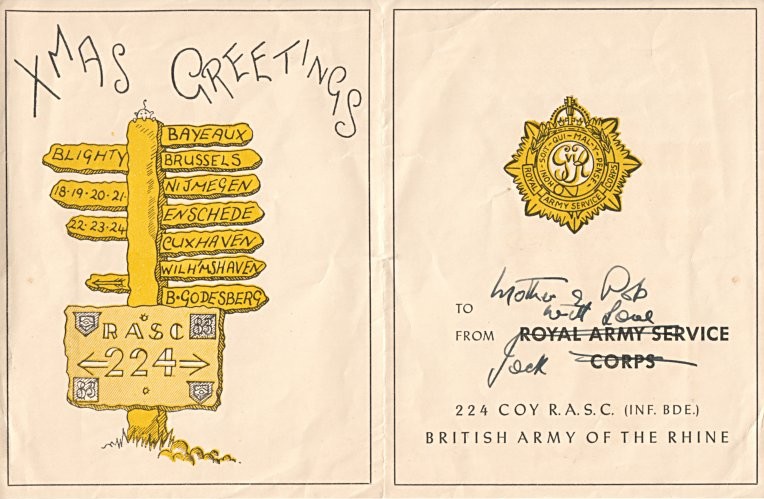 XMAS GREETINGS
BAYEAUX
BLIGHTY
BRUSSELS
18·19·20·21·
NIJMEGEN
ENSCHEDE
22·23·24
CUXHAVEN
WILH'MSHAVEN
B·GODESBERG
RASC
83
224
83
HONI·SOIT·QUI·MAL·Y·PENSE
GVIR
ROYAL ARMY SERVICE CORPS
TO Mother & Pop
with Love
FROM ROYAL ARMY SERVICE
Jack CORPS
224 COY R.A.S.C. (INF. BDE.)
BRITISH ARMY OF THE RHINE